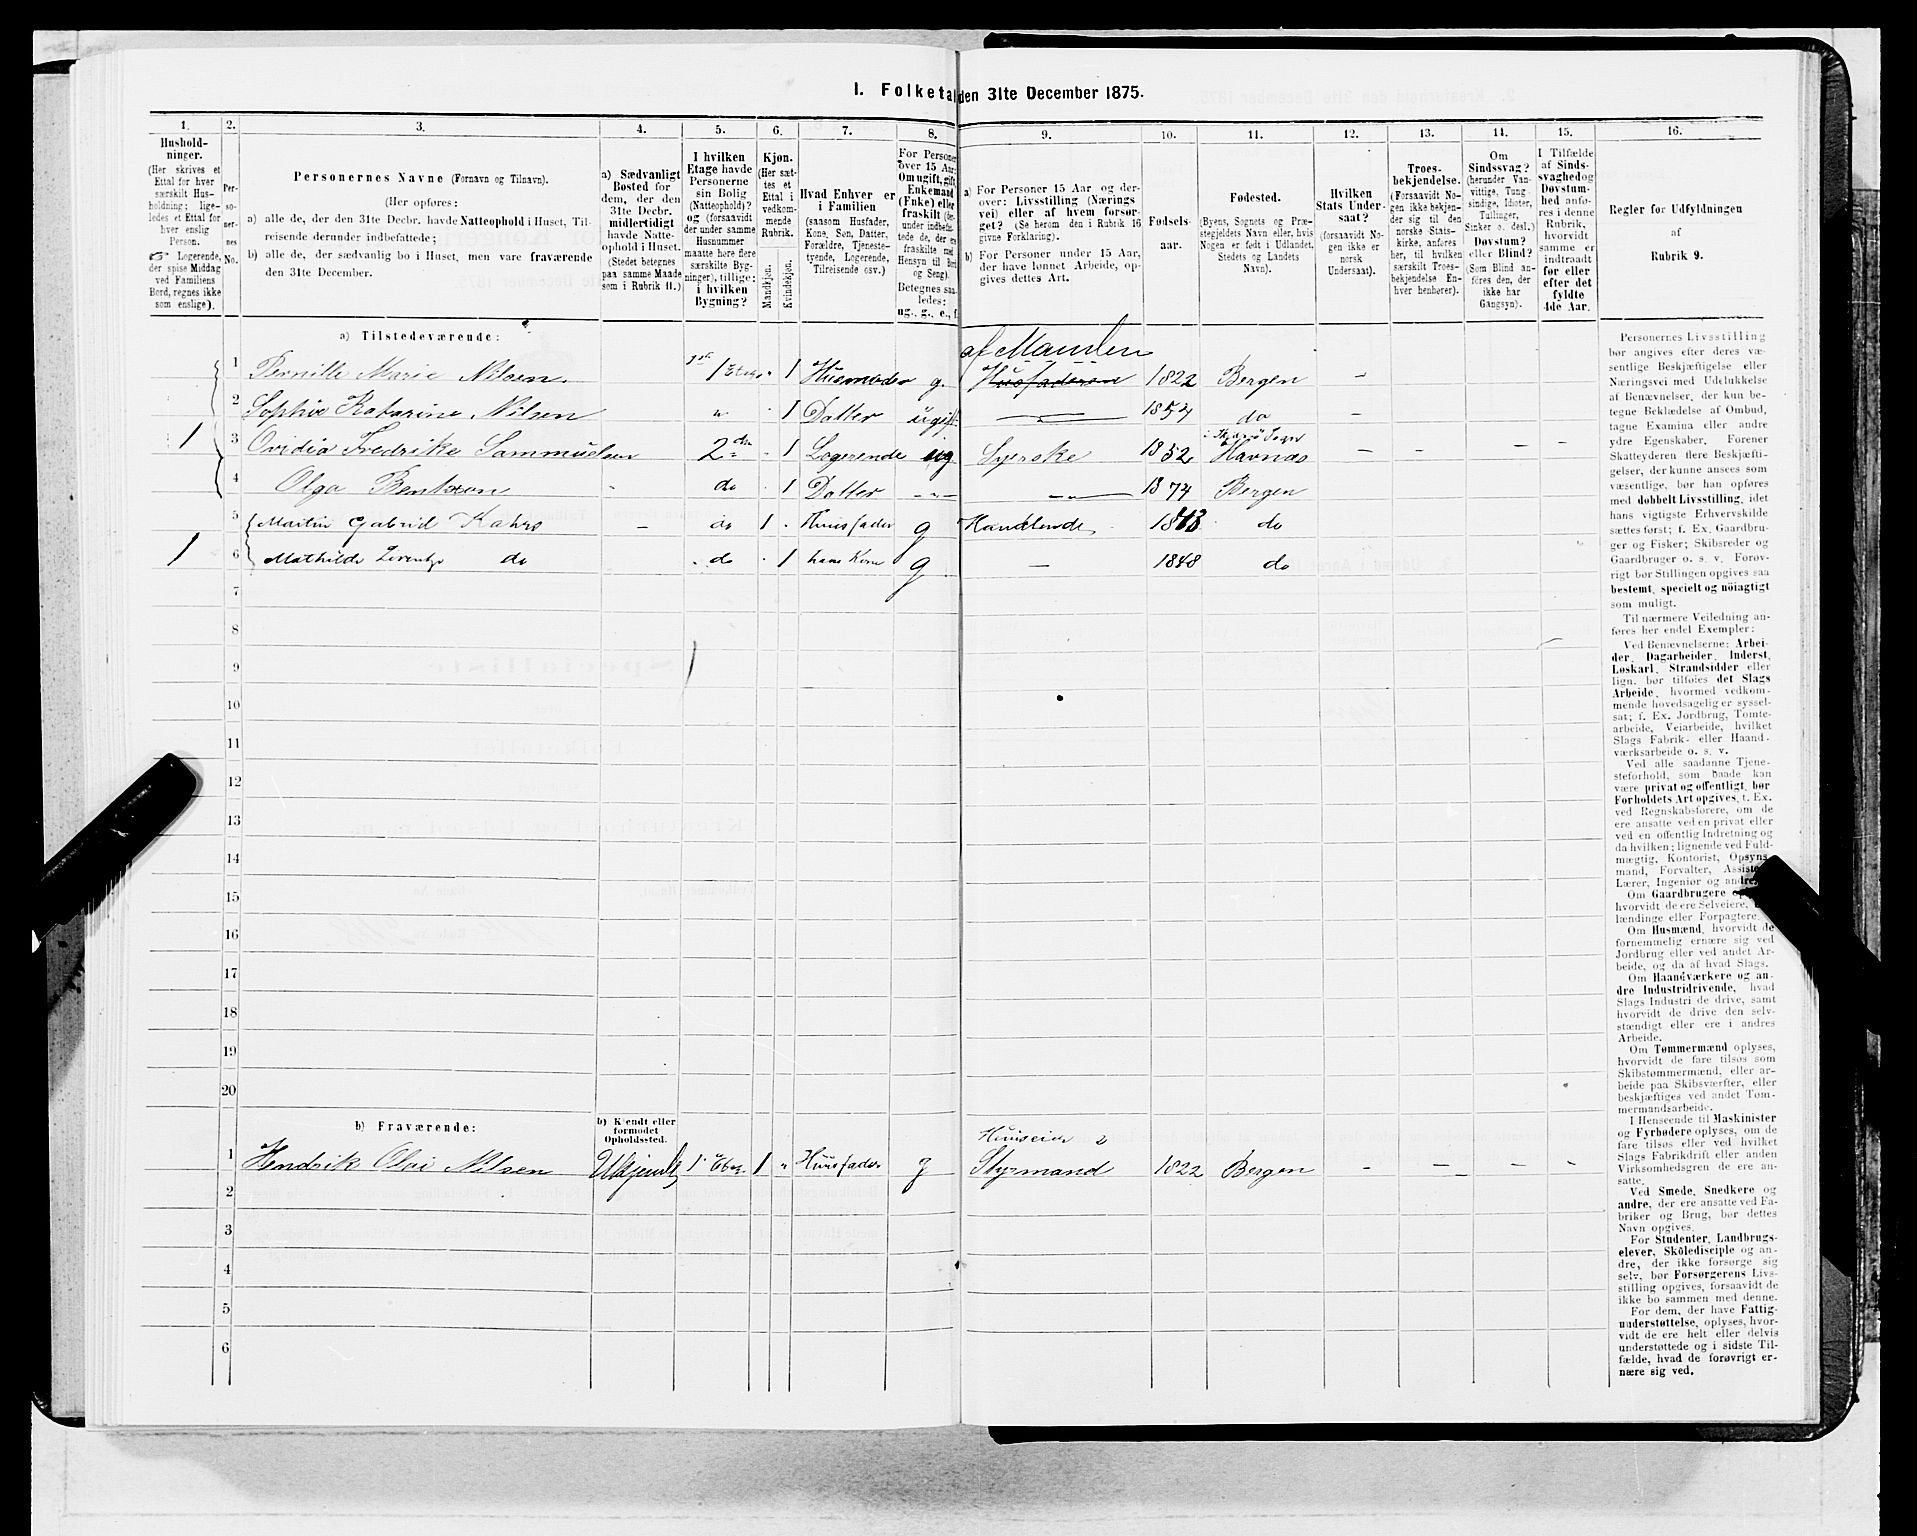 I. Folketal den 31te December 1875.
1. 2. 3. 4. 5. 6. 7. 8. 9. 10. 11. 12. 13. 14. 15. 16.
Hushold-
ninger.
(Her skrives et
Ettal for hver
særskilt Hus-
holdning; lige-
ledes et Ettal for
hver enslig
Person.
☞ Logerende,
der spise Middag
ved Familiens
Bord, regnes ikke
som enslige).
Per-
so-
ner-
nes
No.
Personernes Navne (Fornavn og Tilnavn).
(Her opføres:
a) alle de, der den 31te Decbr. havde Natteophold i Huset, Til-
reisende derunder indbefattede;
b) alle de, der sædvanlig bo i Huset, men vare fraværende
den 31te December.
a) Sædvanligt
Bosted for
dem, der den
31te Decbr.
midlertidigt
havde Natte-
ophold i Huset.
(Stedet betegnes
paa samme Maade
som i Rubrik 11.)
I hvilken
Etage havde
Personerne
sin Bolig
(Natteophold)?
og (forsaavidt
der under samme
Husnummer
maatte høre flere
særskilte Byg-
ninger), tillige:
i hvilken
Bygning?
Kjøn.
(Her sæt-
tes et
Ettal i
vedkom-
mende
Rubrik.
Mandkjøn.
Kvindekjøn.
Hvad Enhver er
i Familien
(saasom Husfader,
Kone, Søn, Datter,
Forældre, Tjeneste-
tyende, Logerende,
Tilreisende osv.)
For Personer
over 15 Aar:
Om ugift, gift,
Enkemand
(Enke) eller
fraskilt (her-
under indbefat-
tede de, der ere
fraskilte med
Hensyn til Bord
og Seng).
Betegnes saa-
ledes:
ug., g., e., f.
a) For Personer 15 Aar og der-
over: Livsstilling (Nærings-
vei) eller af hvem forsør-
get? (Se herom den i Rubrik 16
givne Forklaring).
b) For Personer under 15 Aar,
der have lønnet Arbeide, op-
gives dettes Art.
Fødsels-
aar.
Fødested.
(Byens, Sognets og Præ-
stegjeldets Navn eller, hvis
Nogen er født i Udlandet,
Stedets og Landets
Navn).
Hvilken
Stats Under-
saat?
(forsaavidt No-
gen ikke er
norsk
Undersaat).
Troes-
bekjendelse.
(Forsaavidt No-
gen ikke bekjen-
der sig til den
norske Stats-
kirke, anføres
her, til hvilken
særskilt Troes-
bekjendelse En-
hver henhører).
Om
Sindssvag?
(herunder Van-
vittige, Tung-
sindige, Idioter,
Tullinger,
Sinker o. desl.)
Døvstum?
eller Blind?
(Som Blind an-
føres den, der
ikke har
Gangsyn).
I Tilfælde
af Sinds-
svaghed og
Døvstum-
hed anfø-
res i denne
Rubrik,
hvorvidt
samme er
indtraadt
før eller
efter det
fyldte
4de Aar.
Regler før Udfyldningen
af
Rubrik 9.
a) Tilstedeværende:
af Manden
1 Pernille Marie Nilsen 1 Etage " 1 Husmoder g. Husfaderen 1822 Bergen –
2 Sophie Katarine Nilsen " 1 Datter ugift — 1854 do –
1 3 Ovidia Fredrikke Sammuelsen 2den 1 Logerende ug Syerske 1852 Havnæs – – – –
4 Olga Bentzon do 1 Datter –"– –"– 1874 Bergen
5 Martin Gabriel Kahrs – do 1 Huusfader g Handlende 1813 do
1 6 Mathilde do do 1 hans Kone g – 1848 do
7
8
9
10
11
12
13
14
15
16
17
18
19
20
b) Fraværende:
b) Kjendt eller
formodet
Opholdssted.
Huuseier
1 Hendrik Olai Nilsen Ukjendt 1 Etag. 1 " Huusfader g Styrmand 1822 Bergen – – – –
2
3
4
5
6
Personernes Livsstilling
bør angives efter deres væ-
sentlige Beskjæftigelse eller
Næringsvei med Udelukkelse
af Benævnelser, der kun be-
tegne Beklædelse af Ombud,
tagne Examina eller andre
ydre Egenskaber. Forener
Skatteyderen flere Beskjæfti-
gelser, der kunne ansees som
væsentlige, bør han opføres
med dobbelt Livsstilling, idet
hans vigtigste Erhvervskilde
sættes først; f. Ex. Gaardbru-
ger og Fisker; Skibsreder og
Gaardbruger o. s. v. Forøv-
rigt bør Stillingen opgives saa
bestemt, specielt og nöiagtigt
som muligt.
Til nærmere Veiledning an-
føres her endel Exempler:
Ved Benævnelserne: Arbei-
der, Dagarbeider, Inderst,
Løskarl, Strandsidder eller
lign. bør tilføies det Slags
Arbeide, hvormed vedkom-
mende hovedsagelig er syssel-
sat; f. Ex. Jordbrug, Tomte-
arbeide, Veiarbeide, hvilket
Slags Fabrik- eller Haand-
værksarbeide o. s. v.
Ved alle saadanne Tjene-
steforhold, som baade kan
være privat og offentligt, bør
Forholdets Art opgives, t. Ex.
ved Regnskabsførere, om de
ere ansatte ved en privat eller
ved en offentlig Indretning og
da hvilken; lignende ved Fuld-
mægtig, Kontorist, Opsyns-
mand, Forvalter, Assistent,
Lærer, Ingeniør og andre.
Om Gaardbrugere
hvorvidt de ere Selveiere,
lændinge eller Forpagtere.
Om Husmænd, hvorvidt de
fornemmelig ernære sig ved
Jordbrug eller ved andet Ar-
beide, og da af hvad Slags.
Om Haandværkere og an-
dre Industridrivende, hvad
Slags Industri de drive, samt
hvorvidt de drive den selv-
stændigt eller ere i andres
Arbeide.
Om Tømmermænd oplyses,
hvorvidt de fare tilsøs som
Skibstømmermænd, eller ar-
beide paa Skibsværfter, eller
beskjæftiges ved andet Tøm-
mermandsarbeide.
I Henseende til Maskinister
og Fyrbødere oplyses, om de
fare tilsøs eller ved hvilket
Slags Fabrikdrift eller anden
Virksomhedsgren de ere an-
satte.
Ved Smede, Snedkere og
andre, der ere ansatte ved Fa-
briker og Brug, bør dettes
Navn opgives.
For Studenter, Landbrugs-
elever, Skoledisciple og an-
dre, der ikke forsørge sig
selv, bør Forsørgerens Livs-
stilling opgives, forsaavidt de
ikke bo sammen med denne.
For dem, der have Fattig-
understøttelse, oplyses, hvor-
vidt de ere helt eller delvis
understøttede og i sidste Til-
fælde, hvad de forøvrigt er-
nære sig ved.